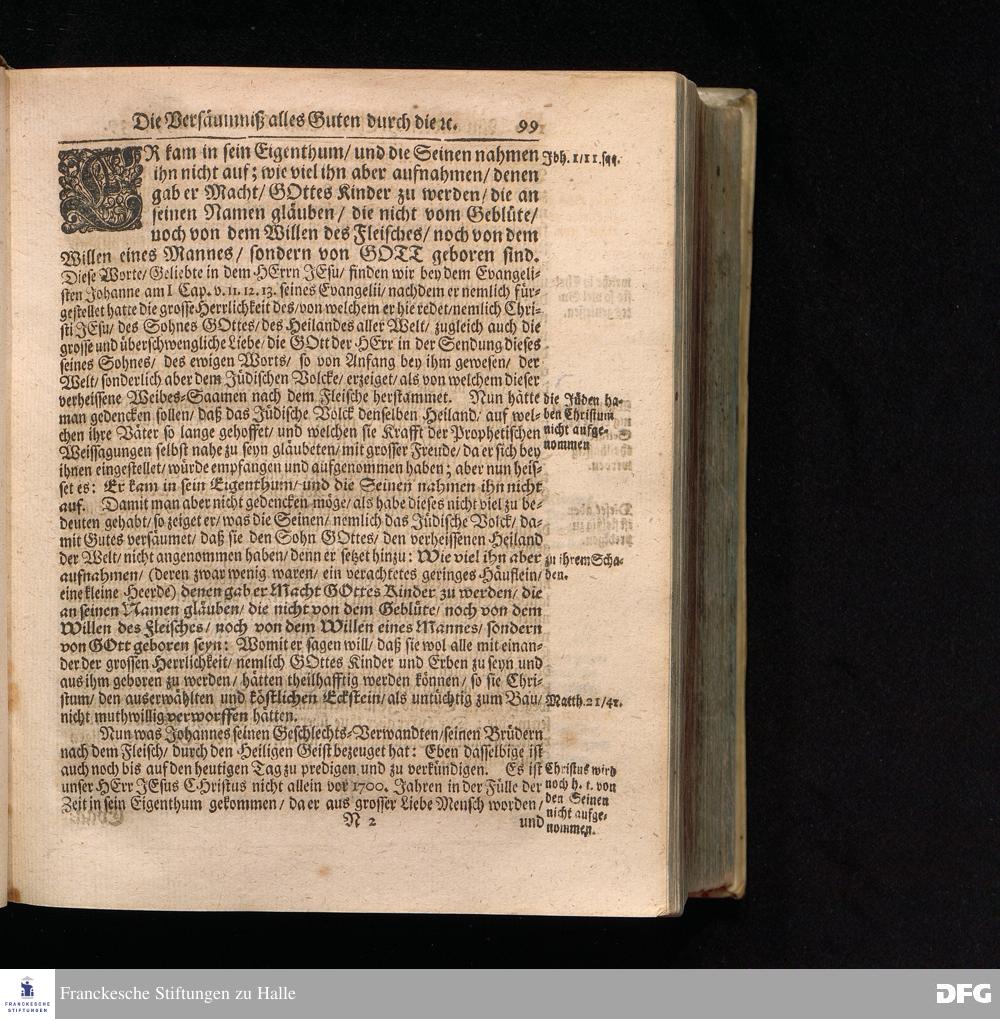 Die Versäumniß alles Guten durch die ꝛc. 99
ER kam in sein Eigenthum/ und die Seinen nahmen
ihn nicht auf; wie viel ihn aber aufnahmen/ denen
gab er Macht/ GOttes Kinder zu werden/ die an
seinen Namen gläuben/ die nicht vom Geblüte/
noch von dem Willen des Fleisches/ noch von dem
Willen eines Mannes/ sondern von GOTT geboren sind.
Joh. 1/11. sqq.
Diese Worte/ Geliebte in dem HErrn JEsu/ finden wir bey dem Evangeli-
sten Johanne am I Cap. v. 11. 12. 13. seines Evangelii/ nachdem er nemlich für-
gestellet hatte die grosse Herrlichkeit des/ von welchem er hie redet/ nemlich Chri-
sti JEsu/ des Sohnes GOttes/ des Heilandes aller Welt/ zugleich auch die
grosse und überschwengliche Liebe/ die GOtt der HErr in der Sendung dieses
seines Sohnes/ des ewigen Worts/ so von Anfang bey ihm gewesen/ der
Welt/ sonderlich aber dem Jüdischen Volcke/ erzeiget/ als von welchem dieser
verheissene Weibes-Saamen nach dem Fleische herstammet. Nun hätte
man gedencken sollen/ daß das Jüdische Volck denselben Heiland/ auf wel-
chen ihre Väter so lange gehoffet/ und welchen sie Krafft der Prophetischen
Weissagungen selbst nahe zu seyn gläubeten/ mit grosser Freude/ da er sich bey
ihnen eingestellet/ würde empfangen und aufgenommen haben; aber nun heis-
set es: Er kam in sein Eigenthum/ und die Seinen nahmen ihn nicht
auf. Damit man aber nicht gedencken möge/ als habe dieses nicht viel zu be-
deuten gehabt/ so zeiget er/ was die Seinen/ nemlich das Jüdische Volck/ da-
mit Gutes versäumet/ daß sie den Sohn GOttes/ den verheissenen Heiland
der Welt/ nicht angenommen haben/ denn er setzet hinzu: Wie viel ihn aber
aufnahmen/ (deren zwar wenig waren/ ein verachtetes geringes Häuflein/
eine kleine Heerde) denen gab er Macht GOttes Kinder zu werden/ die
an seinen Namen gläuben/ die nicht von dem Geblüte/ noch von dem
Willen des Fleisches/ noch von dem Willen eines Mannes/ sondern
von GOtt geboren seyn: Womit er sagen will/ daß sie wol alle mit einan-
der der grossen Herrlichkeit/ nemlich GOttes Kinder und Erben zu seyn und
aus ihm geboren zu werden/ hätten theilhafftig werden können/ so sie Chri-
stum/ den auserwählten und köstlichen Eckstein/ als untüchtig zum Bau/
nicht muthwillig verworffen hätten.
die Jüden ha-
ben Christum
nicht aufge-
nommen
zu ihrem Scha-
den.
Matth. 21/42.
Nun was Johannes seinen Geschlechts-Verwandten/ seinen Brüdern
nach dem Fleisch/ durch den Heiligen Geist bezeuget hat: Eben dasselbige ist
auch noch bis auf den heutigen Tag zu predigen und zu verkündigen. Es ist
unser HErr JEsus CHristus nicht allein vor 1700. Jahren in der Fülle der
Zeit in sein Eigenthum gekommen/ da er aus grosser Liebe Mensch worden/
Christus wird
noch h. t. von
den Seinen
nicht aufge-
nommen.
N 2 und
Franckesche Stiftungen zu Halle
FRANCKESCHE
STIFTUNGEN
DFG